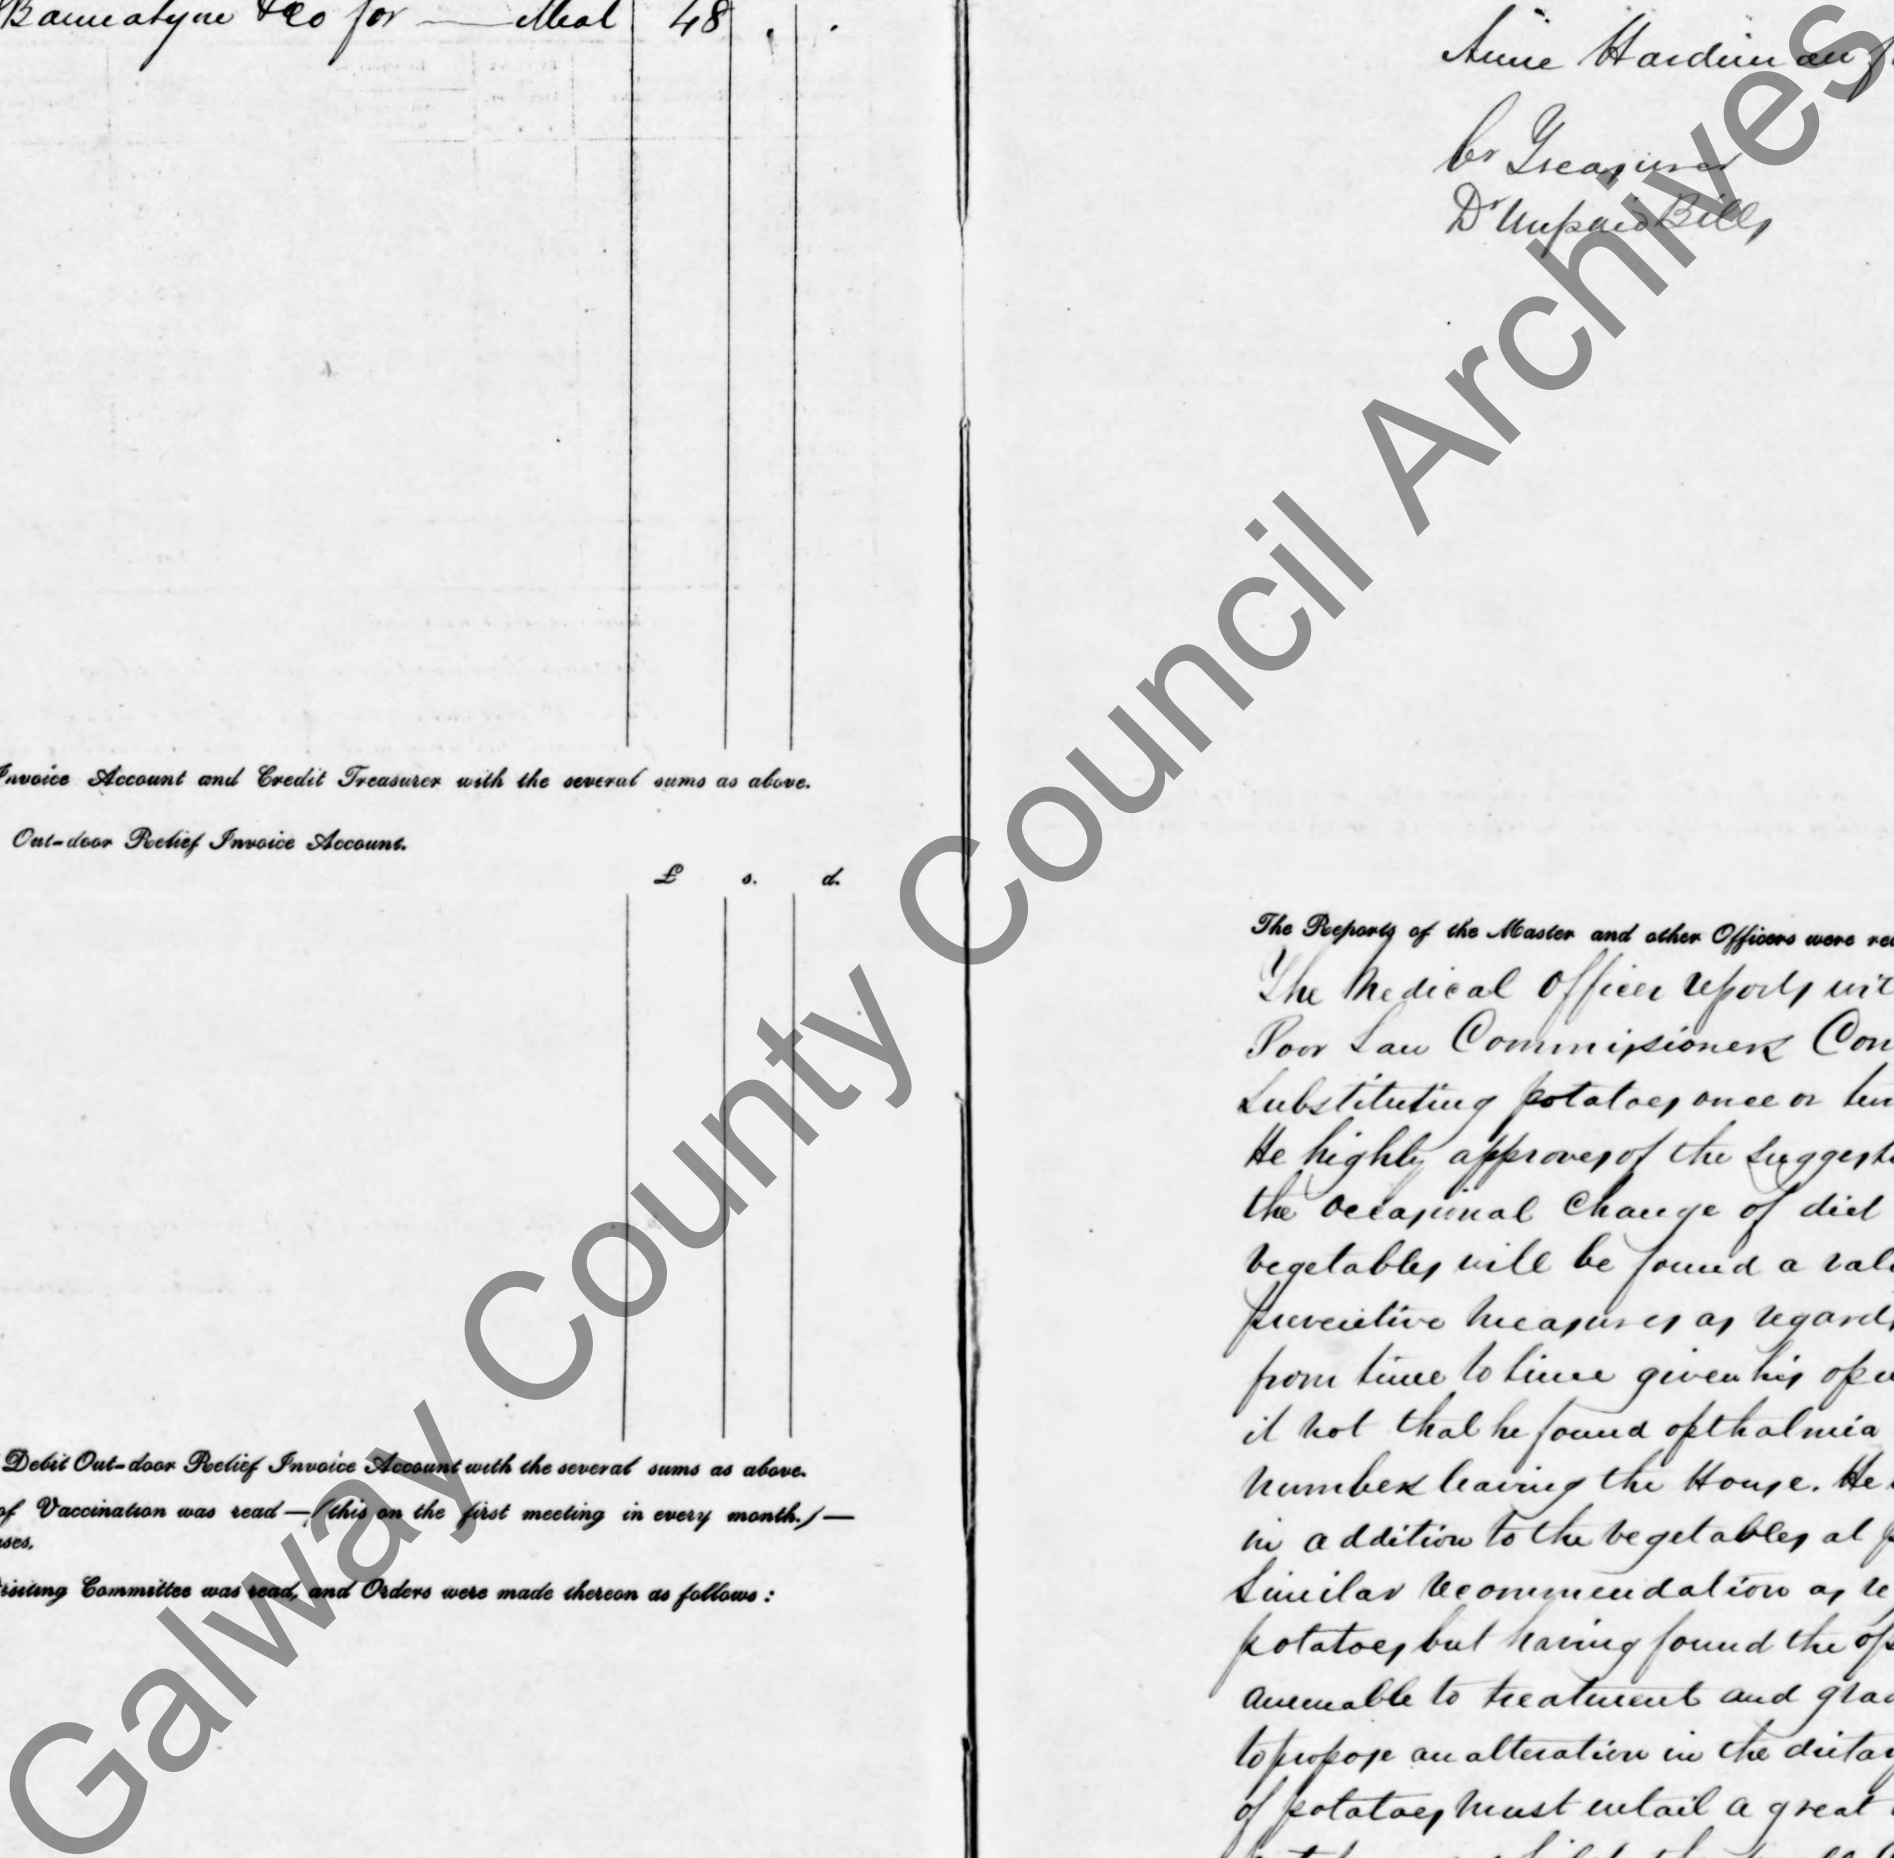 Bannatyne & Co for — Meal 48 . .
Invoice Account and Credit Treasurer with the several sums as above.
Out-door Relief Invoice Account.
£ s. d.
Debit Out-door Relief Invoice Account with the several sums as above.
of Vaccination was read—(this on the first meeting in every month.)—
ses.
isiting Committee was read, and Orders were made thereon as follows:
Anne Hardiman f
Cr Treasurer
Dr Unpaid Bills
The Reports of the Master and other Officers were re
The Medical Officer reports wit
Poor Law Commissioners Con
substituting potatoes once or
He highly approves of the suggest
the occasional change of diet
vegetables will be found a val
preventive measures as regards
from time to time given his
it not that he found opthalmia
number leaving the House. He
in addition to the vegetables at p
similar recommendation as re
potatoes but having found the op
amenable to treatment and grad
to propose an alteration in the dietar
of potatoes must entail a great
Galway County Council Archives